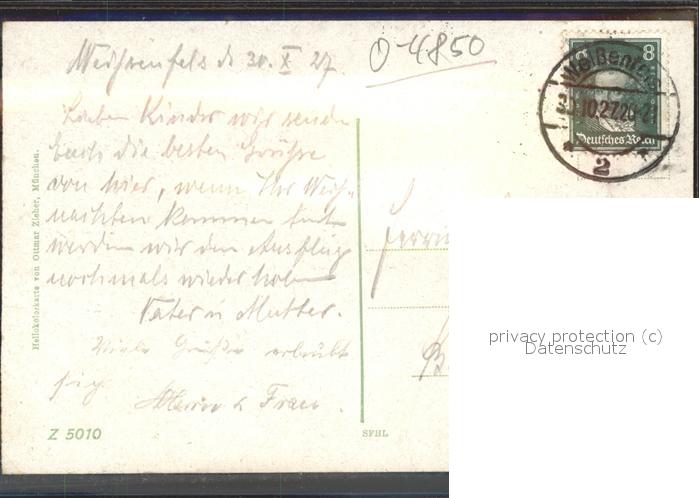 Weißenfels d 30. X 27
O-4850
8
Weißenfels
30.10.27.20-21
Deutsches Reich
2
Lieben Kinder wir senden
Euch die besten Grüße
von hier, wenn Ihr Weih-
nachten kommen tut
werden wir den Ausflug
nochmals wieder holen
Vater u Mutter.
Viele Grüße erlaubt
sich
Frau.
Hellokolorkarte von Ottmar Zieher, München.
Z 5010
SFBL
privacy protection (c)
Datenschutz